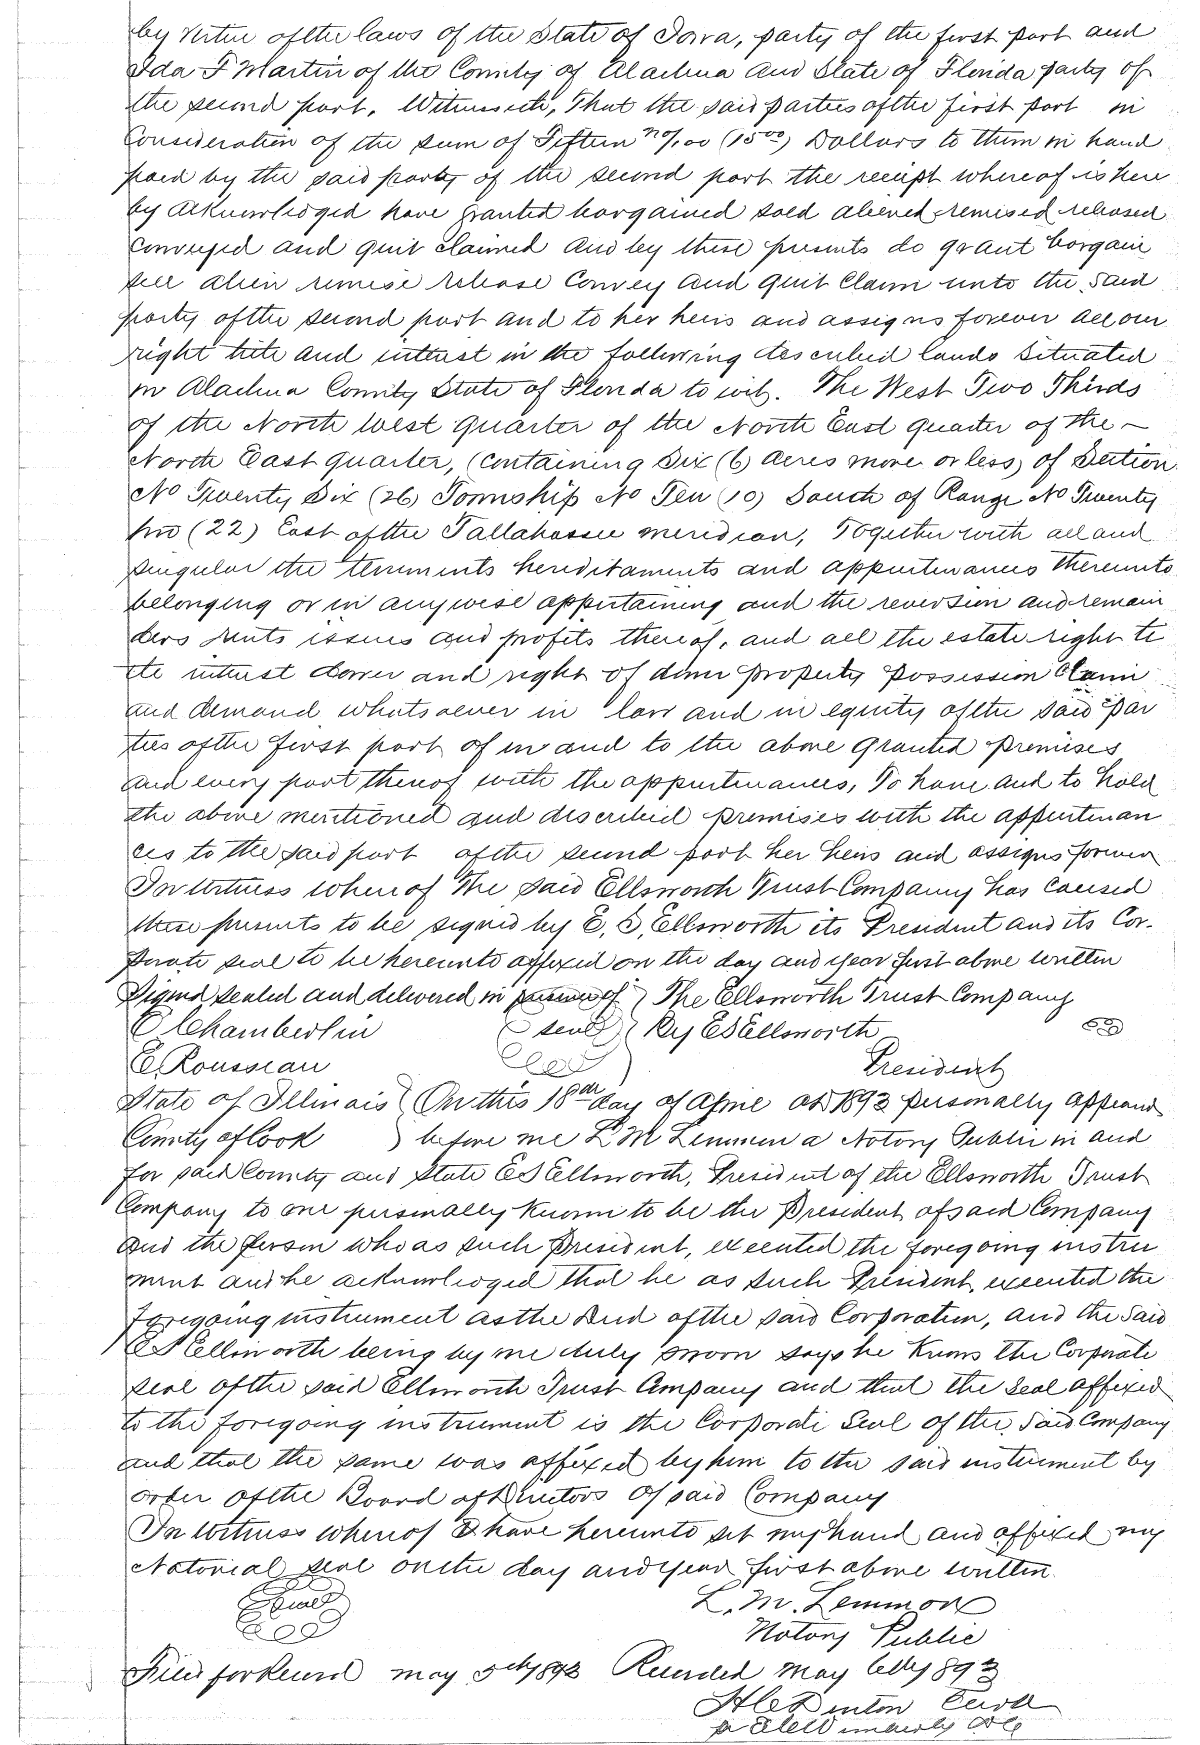 by virtue of the laws of the State of Iowa, party of the first part and
Ida F Martin of the County of Alachua and State of Florida party of
the second part. Witnesseth, That the said parties of the first part in
Consideration of the sum of Fifteen no/100 (15 00) Dollars to them in hand
paid by the said party of the second part the receipt whereof is here
by acknowledged have granted bargained sold aliened remised released
conveyed and quit claimed and by these presents do grant bargain
sell alien remise release Convey and quit Claim unto the said
party of the second part and to her heirs and assigns forever all our
right title and interest in the following described lands situated
in Alachua County State of Florida to wit. The West Two Thirds
of the North West quarter of the North East quarter of the -
North East quarter, (containing Six (6) acres more or less) of Section
No Twenty Six (26) Township No Ten (10) South of Range No Twenty
two (22) East of the Tallahassee meridian, Together with all and
singular the tenements hereditaments and appurtenances thereunto
belonging or in anywise appertaining and the reversion and remain
ders rents issues and profits thereof, and all the estate right ti
tle interest dower and right of dower property possession Claim
and demand whatsoever in law and in equity of the said par
ties of the first part of in and to the above granted premises
and every part thereof with the appurtenances, To have and to hold
the above mentioned and described premises with the appurtenan
ces to the said part of the second part her heirs and assigns forever
In Witness whereof the said Ellsworth Trust Company has caused
these presents to be signed by E, S, Ellsworth its President and its Cor-
porate seal to be hereunto affixed on the day and year first above written
Signed sealed and delivered in presence of } The Ellsworth Trust Company
C Chamberlin (seal) By E S Ellsworth
E. Rousseau President
State of Illinois } On this 18th day of April AD 1893 personally appeared
County of Cook } before me L M Lemmon a Notary Public in and
for said County and State E S Ellsworth, President of the Ellsworth Trust
Company to me personally known to be the President of said Company
and the person who as such President, executed the foregoing instru
ment and he acknowledged that he as such President, executed the
foregoing instrument as the Deed of the said Corporation, and the said
E S Ellsworth being by me duly sworn says he Knows the Corporate
seal of the said Ellsworth Trust Company and that the seal affixed
to the foregoing instrument is the Corporate Seal of the Said Company
and that the same was affixed by him to the said instrument by
order of the Board of Directors of said Company
In Witness whereof I have hereunto set my hand and affixed my
Notorial seal on the day and year first above written.
Seal L. M. Lemmon
Notary Public
Filed for Record may 5th 1893 Recorded May 6th 1893
Denton Clerk